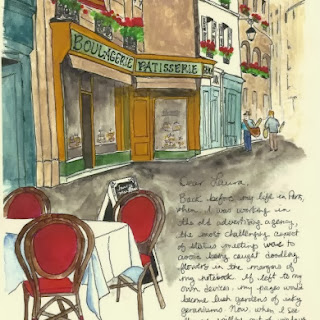 BOULANGERIE PATISSERIE
Dear Laura,
Back before my life in Paris,
when I was working in
the old advertising agency,
the most challenging aspect
of status meetings was to
avoid being caught doodling
flowers in the margins of
my notebook. If left to my
own devices my pages would
become lush gardens of inky
geraniums. Now, when I see